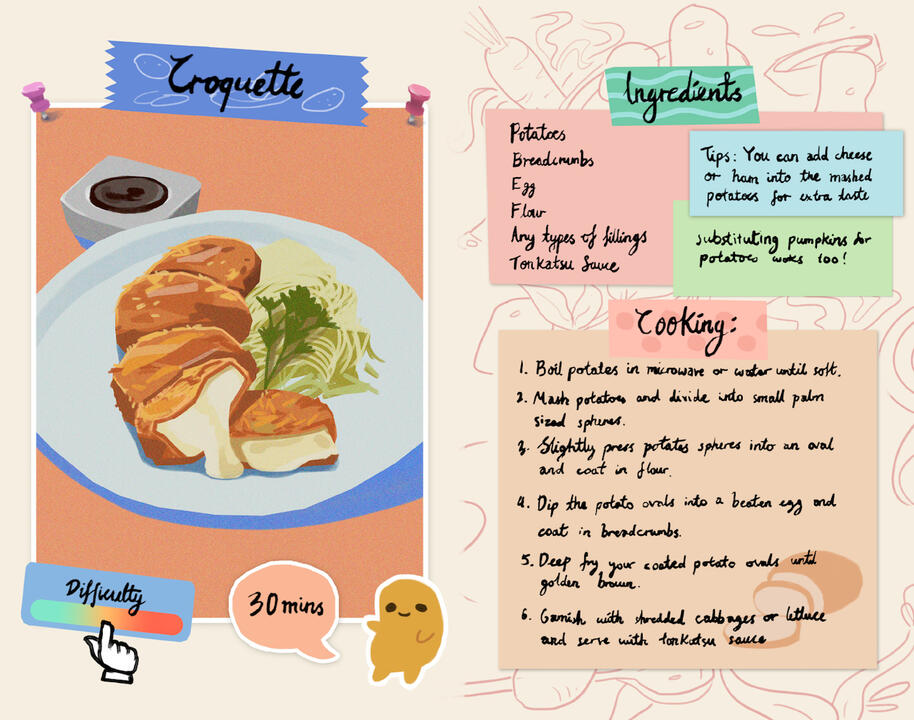 Croquette
Difficulty
30 mins
Ingredients
Potatoes
Breadcrumbs
Egg
Flour
Any types of fillings
Tonkatsu Sauce
Tips: You can add cheese
or ham into the mashed
potatoes for extra taste
substituting pumpkins for
potatoes works too!
Cooking:
1. Boil potates in microwave or water until soft.
2. Mash potatoes and divide into small palm
sized spheres.
3. Slightly press potates spheres into an oval
and coat in flour.
4. Dip the potato ovals into a beaten egg and
coat in breadcrumbs.
5. Deep fry your coated potato ovals until
golden brown.
6. Garnish with shredded cabbages or lettuce
and serve with tonkatsu sauce